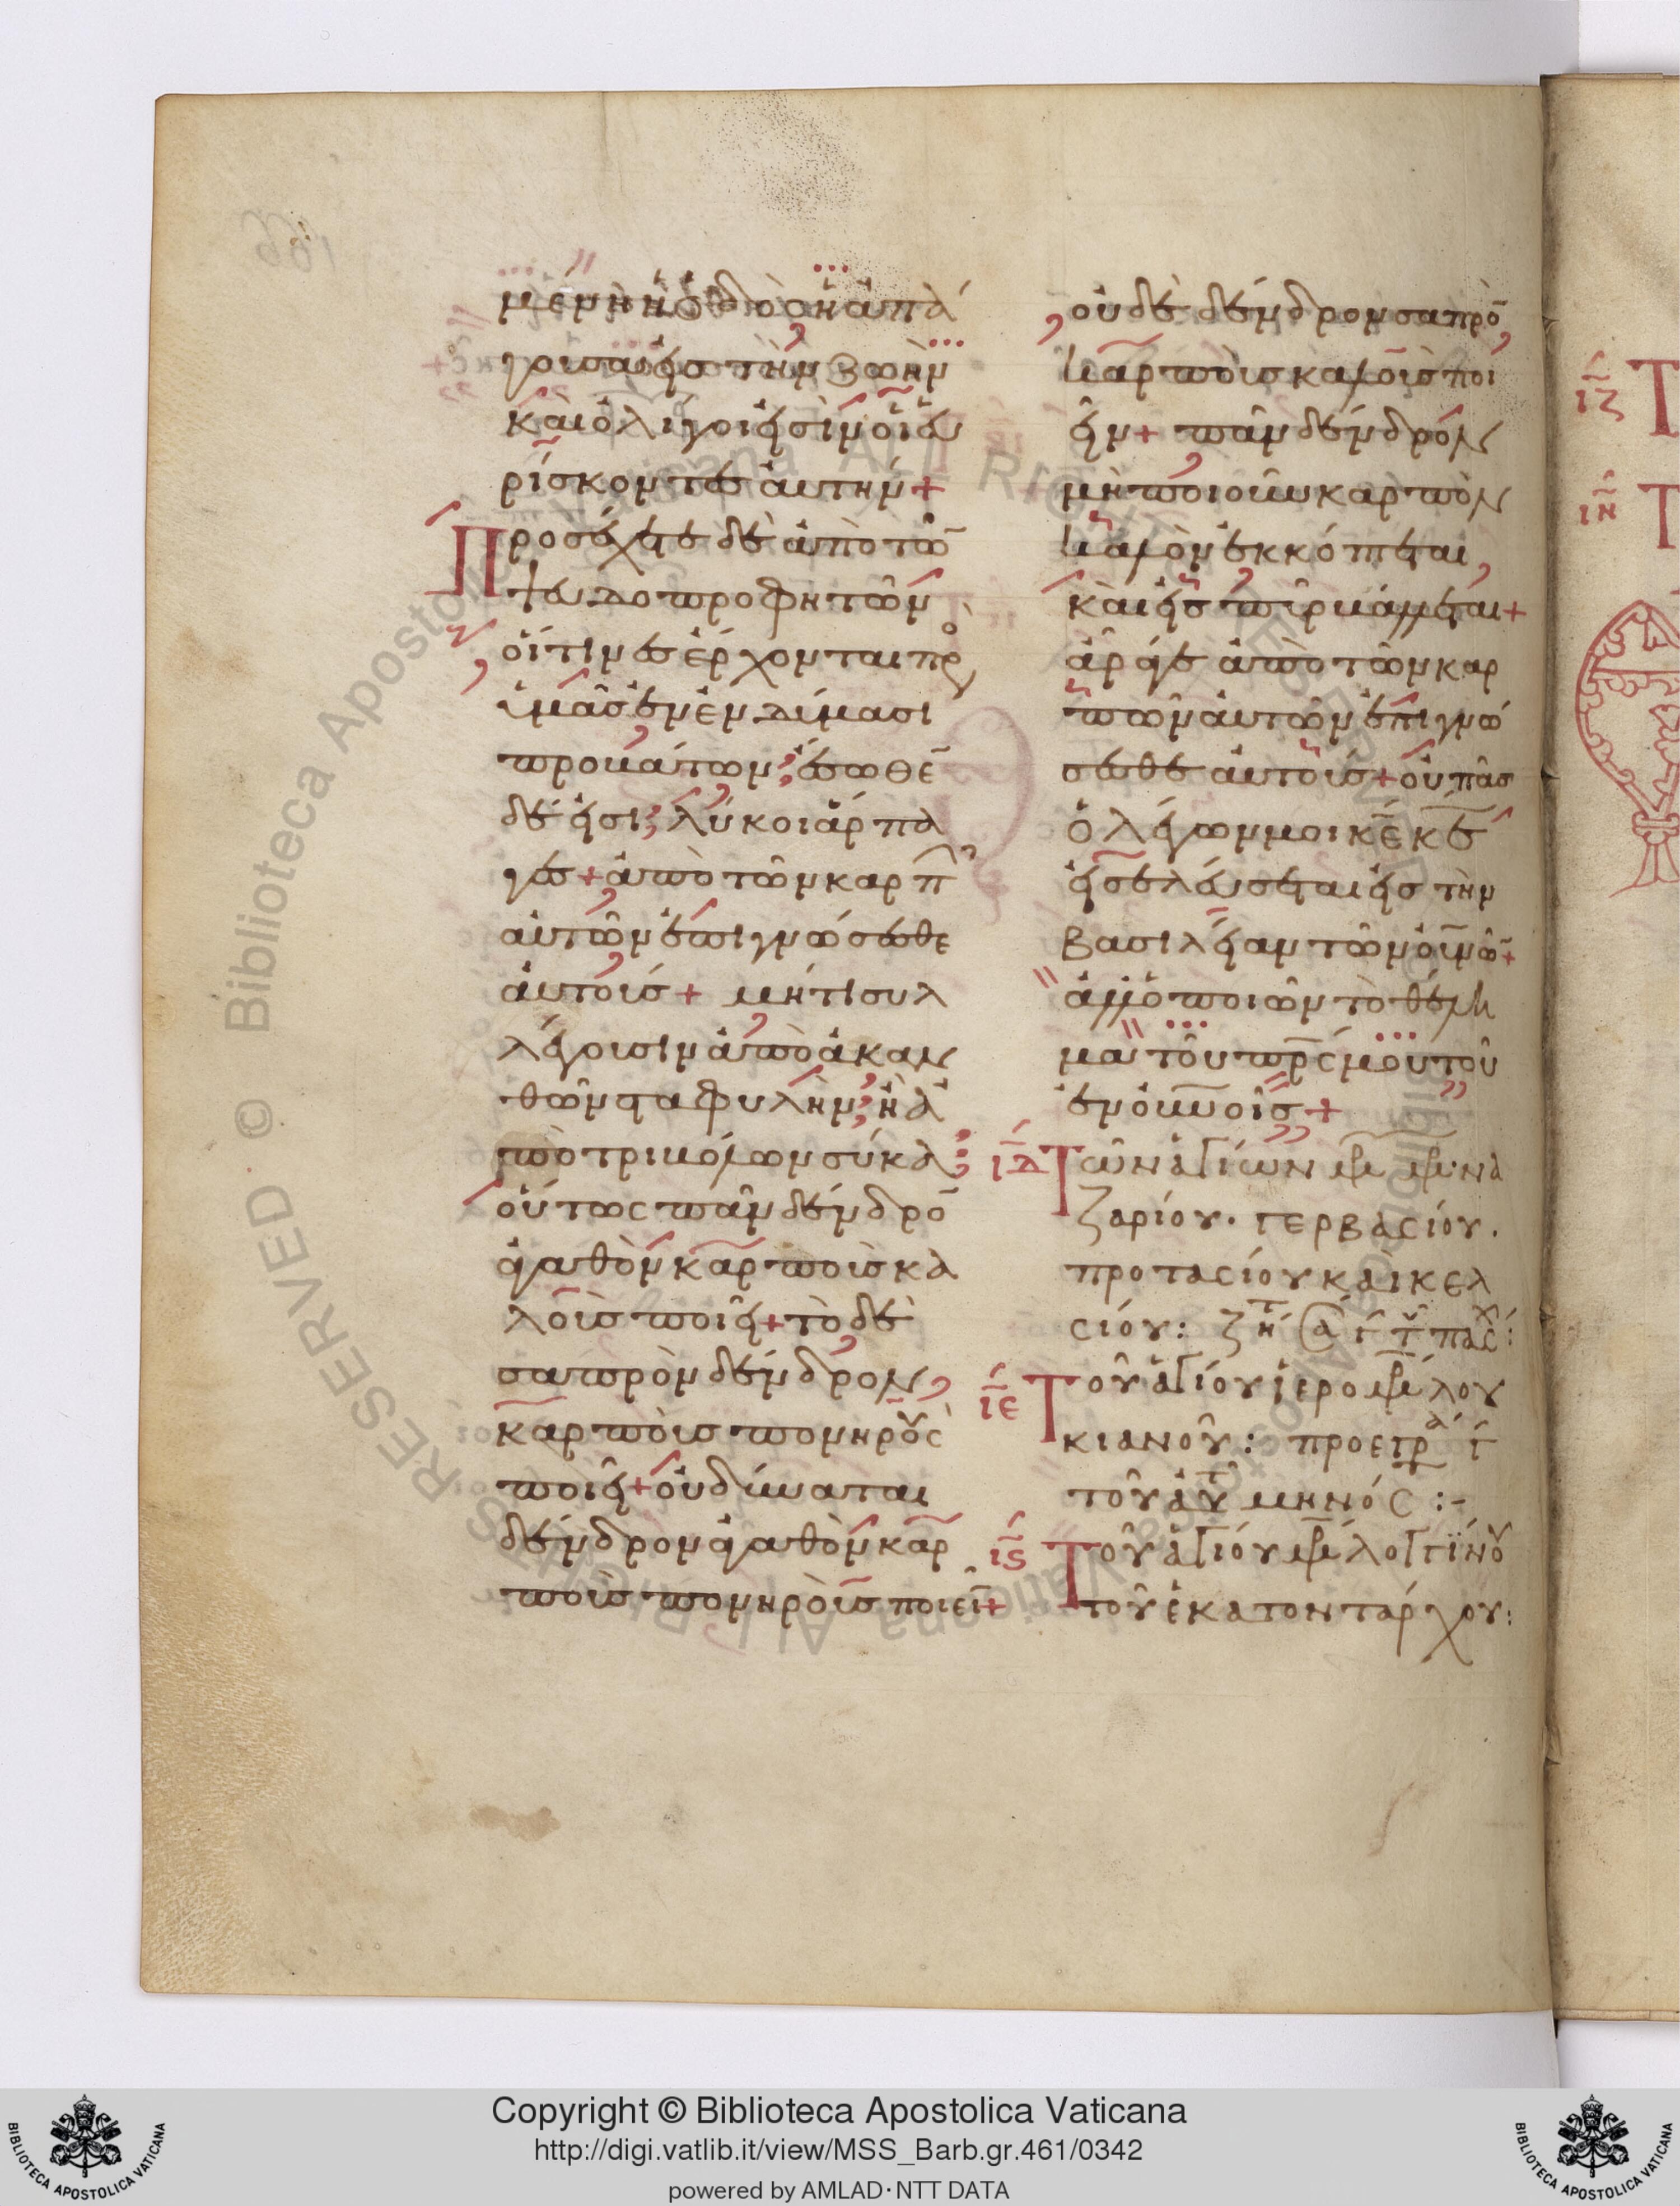 μένη ἡ ὁδὸς ἡ ἀπά
γουσα εἰς τὴν ζωὴν
καὶ ὀλίγοι εἰσὶν οἱ εὑ
ρίσκοντες αὐτήν+
Προσέχετε δὲ ἀπὸ τῶ̄
ψευδοπροφητῶν
οἵτινες ἔρχονται πρ
ὑμᾶς ἐν ἐνδύμασι
προβάτων; ἔσωθε̄
δέ εἰσι; λύκοι ἅρπα
γες+ ἀπὸ τῶν καρπ
αὐτῶν ἐπιγνώσεσθε
αὐτούς+ μήτι συλ
λέγουσιν ἀπὸ ἀκαν
θῶν σταφυλὴν; ἢ ἀ
πὸ τριβόλων σύκα;
οὕτως πᾶν δένδρο̄
ἀγαθὸν καρποὺς κα
λοὺς ποιεῖ+ τὸ δὲ
σαπρὸν δένδρον,
καρποὺς πονηροὺς
ποιεῖ+ οὐ δύναται
δένδρον ἀγαθὸν καρ
ποὺς πονηροὺς ποιεῖ̄+
οὐδὲ δένδρον σαπρὸ̄
καρποὺς καλοὺς ποι
εῖν+ πᾶν δένδρον
μὴ ποιοῦν καρπὸν
καλὸν ἐκκόπτεται,
καὶ εἰς πῦρ βάλλεται+
ἄραγε ἀπὸ τῶν καρ
πῶν αὐτῶν ἐπιγνώ
σεσθε αὐτούς+ οὐ πᾶς
ὁ λέγων μοι κ̄ε κ̄ε
εἰσελεύσεται εἰς τὴν
βασιλείαν τῶν οὐ̄νῶ̄+
ἀλλ' ὁ ποιῶν τὸ θέλη
μα τοῦ πρ̄ς μου τοῦ
ἐν οὐ̄νοῖς+
ῑδ Τῶν ἁγίων μρ μρ να
ζαρίου· γερβασίου·
προτασίου καὶ κελ
σίου: ζητ
ῑε Τοῦ ἁγίου ἱερομρ λου
κιανοῦ: προεγρ
τοῦ αὐτοῦ μηνός :-
ῑς Τοῦ ἁγίου μρ λογγίνου
τοῦ ἑκατοντάρχου:
ῑζ Τ
ῑη Τ
© Biblioteca Apostolica Vaticana ALL RIGHTS RESERVED
Copyright © Biblioteca Apostolica Vaticana
http://digi.vatlib.it/view/MSS_Barb.gr.461/0342
powered by AMLAD·NTT DATA
BIBLIOTECA APOSTOLICA VATICANA
BIBLIOTECA APOSTOLICA VATICANA